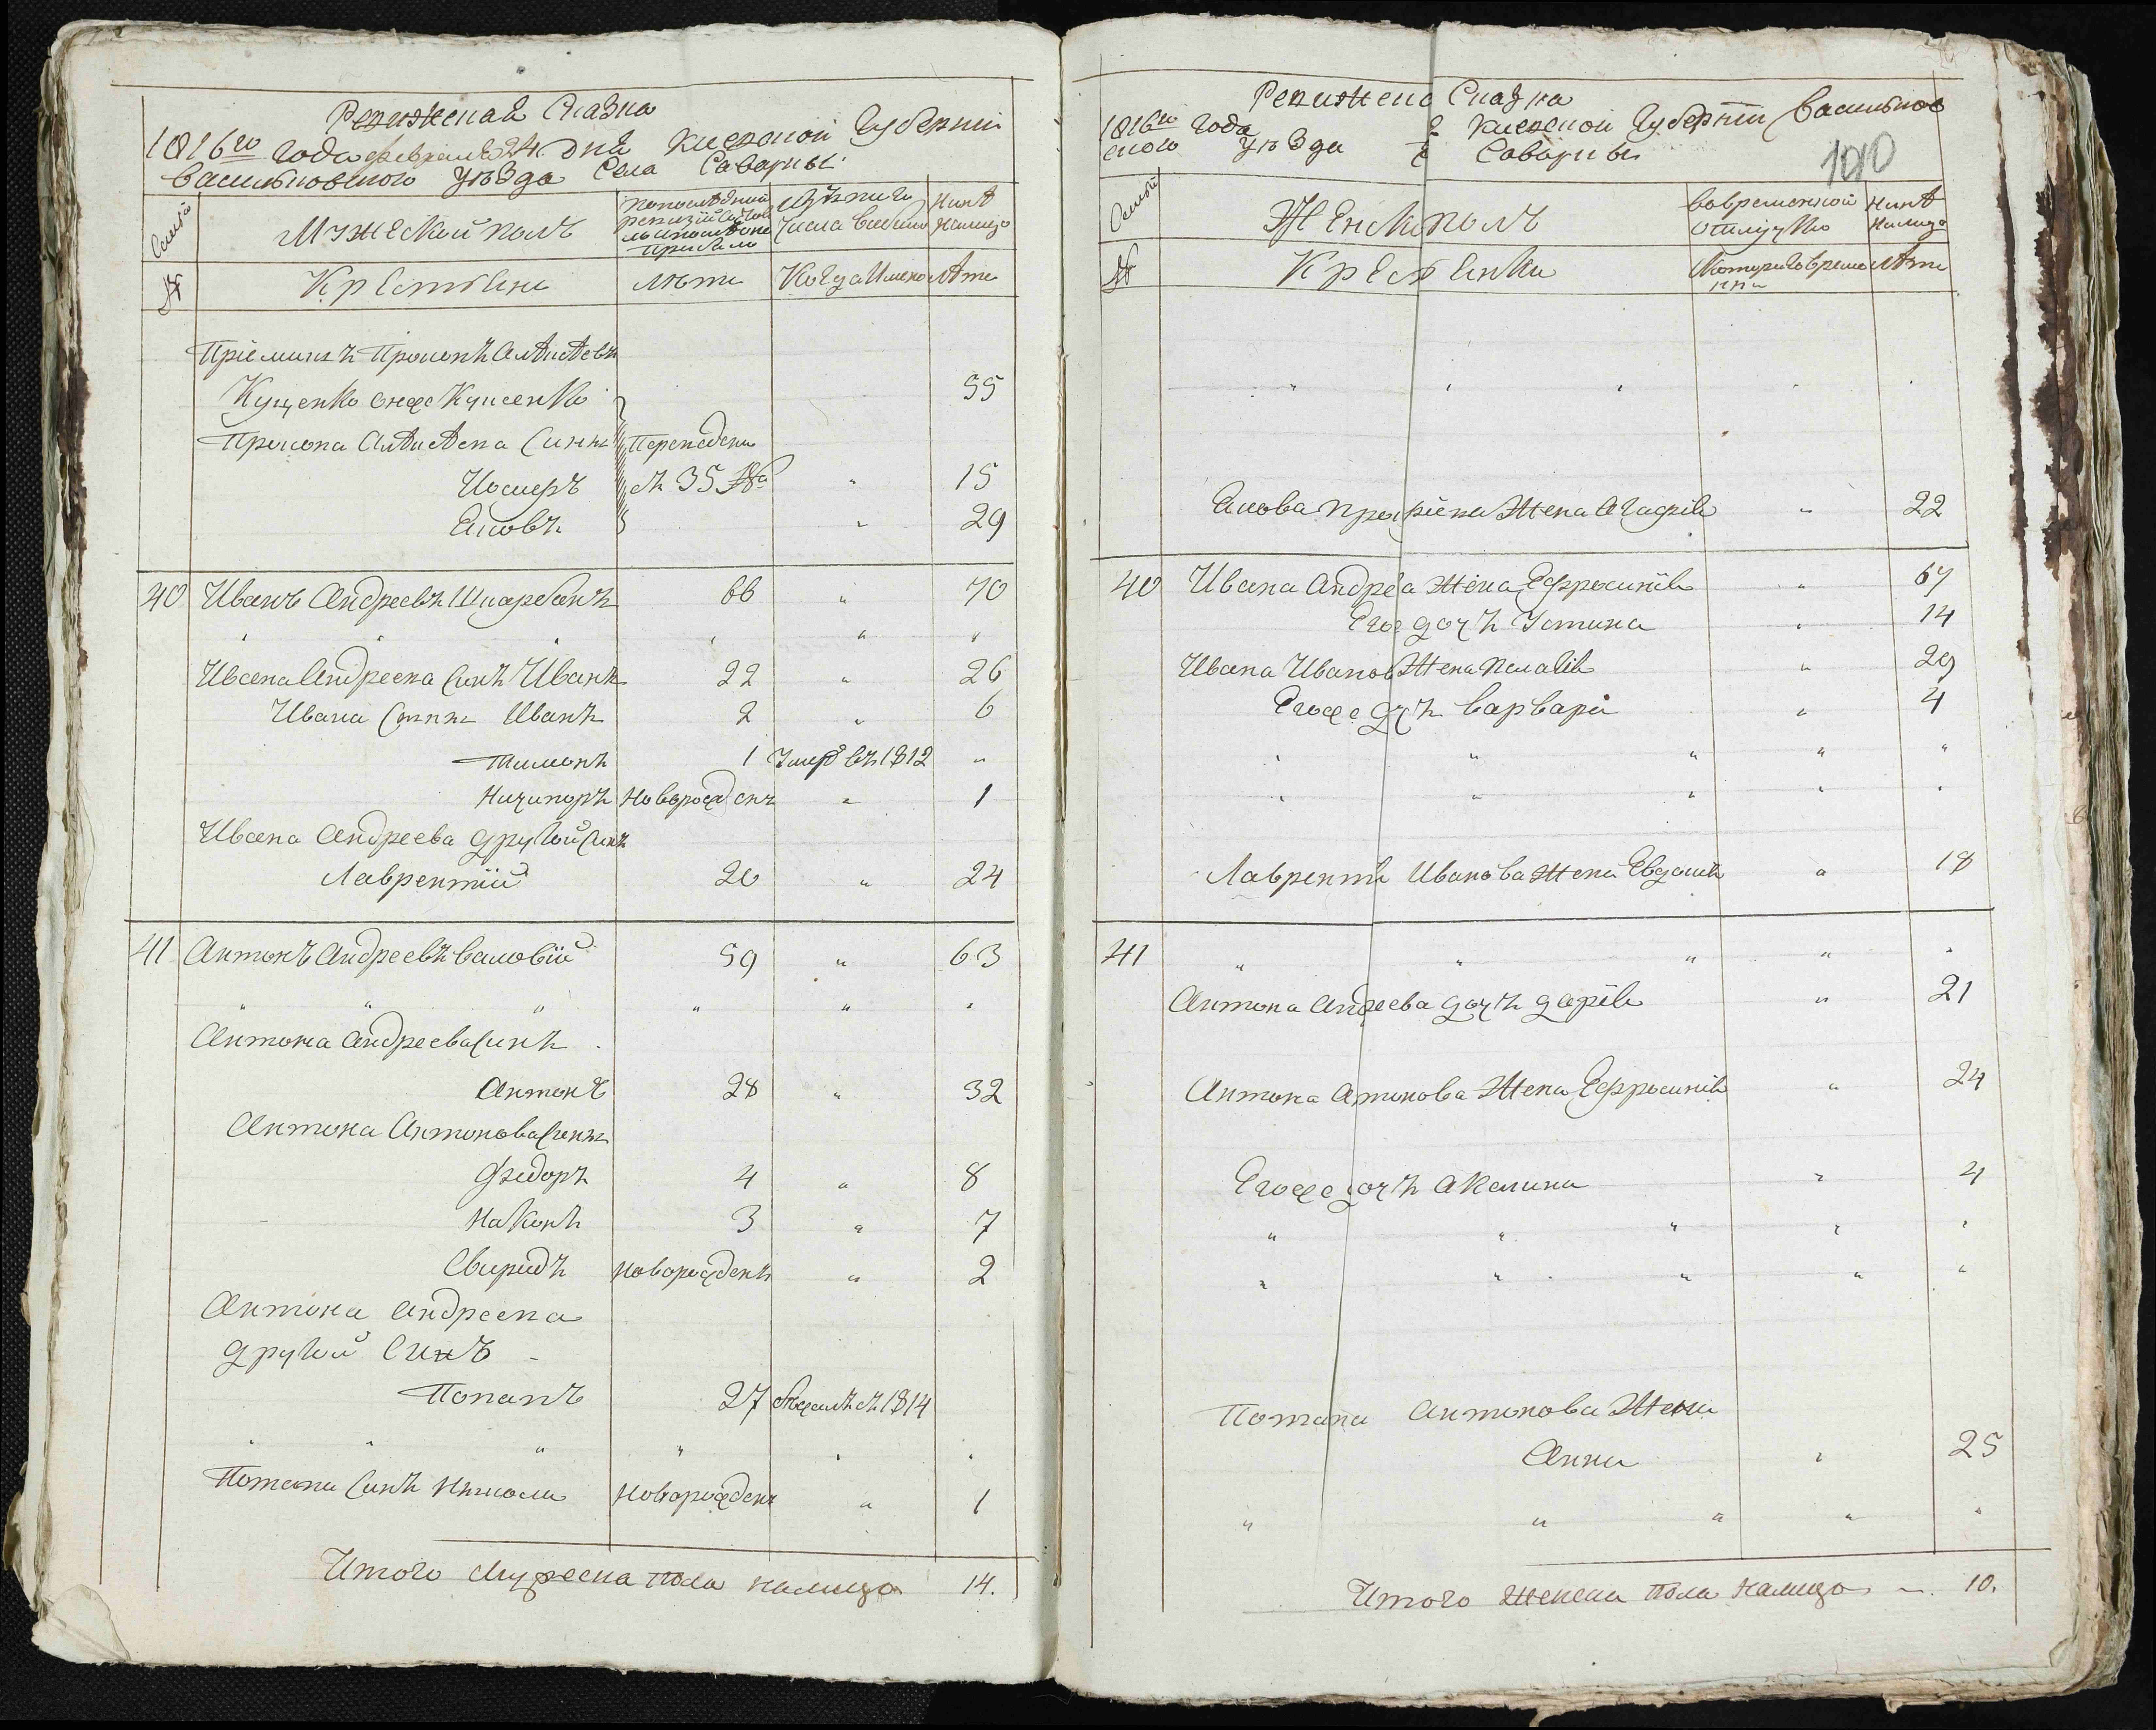 Ревижская Сказка
1816го года февраля 24. дня Киевской Губернии
Васильковского уезда Села Саварки
Семьи
Мужеской полъ
По последней ревизии состояло и после оне прибыло
Изъ того числа выбыло
Ныне налицо
№
Крестьяне
Лета
Когда имено
Лета
Пріемышъ Прокопъ Алексеевъ
Куценко онже Куценко 55
Прокопа Алексеева Сины Переведены
Иосифъ съ 35 № " 15
Яковъ " 29
40 Иванъ Андреевъ Шкарбанъ 66 " 70
" " " " " "
Ивана Андреева Синъ Иванъ 22 " 26
Ивана Сыны Иванъ 2 " 6
Тимошъ 1 Умер въ 1812 "
Ничипоръ Новорожденъ " 1
Ивана Андреева другой Синъ
Лаврентій 20 " 24
41 Антонъ АндреевъВаловій 59 " 63
" " " " " "
Антона Андреева Синъ
Антонъ 28 " 32
Антона Антонова Сины
Федоръ 4 " 8
Наконъ 3 " 7
Свиридъ новорожденъ " 2
Антона Андреева
другой Синъ
Потапъ 27 бежалъ въ 1814
" " " " " "
Потапа Синъ Микола Новорожденъ " 1
Итого Мужеска пола налицо 14.
Ревижска Сказка
1816го года Киевской Губернии Васильков
ского уезда Саварки
1010
Семьи
Женск полъ
Во временной отлучке
Ныне налицо
№
Крестьянки
Которого времени
Лета
" " " " "
Якова Прокопіева Жена Агафія " 22
40 Ивана Андреева Жена Ефросинія " 67
Его дочъ Устина " 14
Ивана Иванов Жена Палагія " 29
Егоже дочъ Варвара " 4
" " " " "
" " " " "
Лаврентія Иванова Жена Евдокія " 18
41 " " " " "
Антона Андреева дочъ дарія " 21
Антона Антонова Жена Ефросинія " 24
Егоже дочъ Акилина " 4
" " " " "
" " " " "
Потапа Антонова Жена
Анна " 25
" " " " "
Итого Женска пола налицо 10.